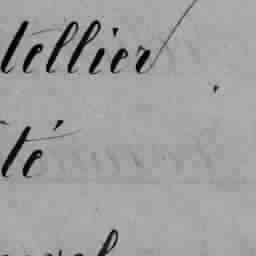 tellier
té